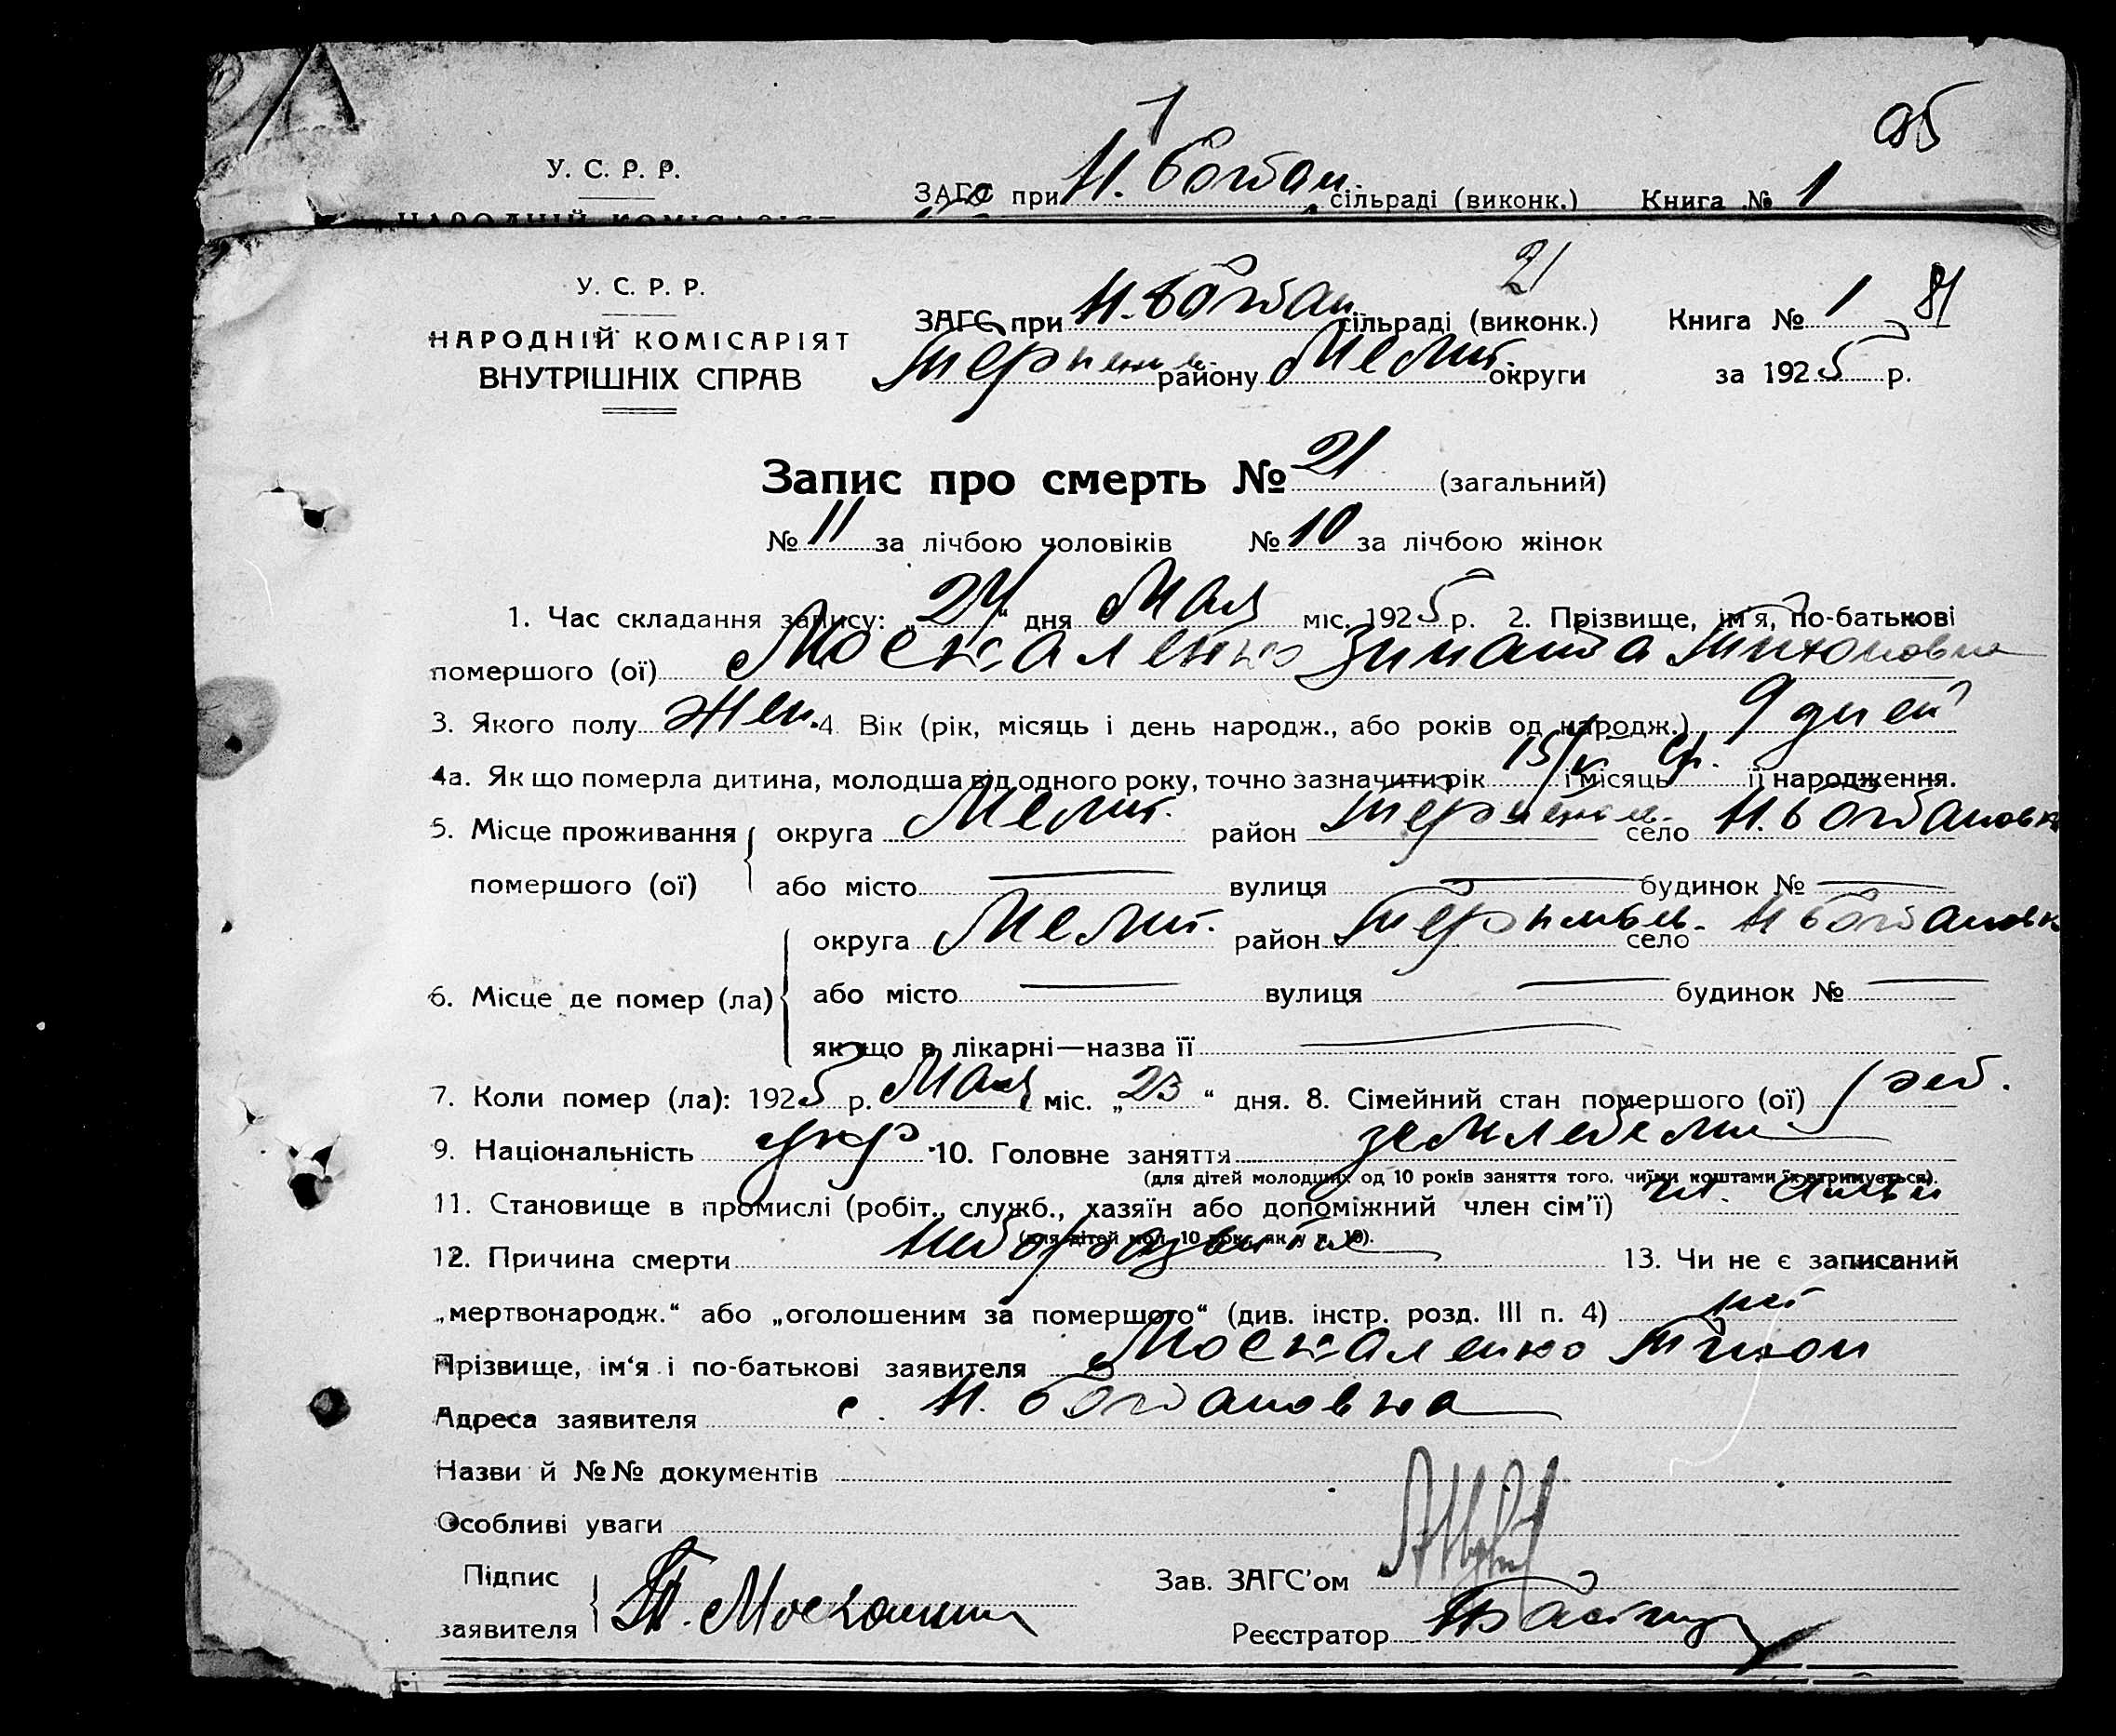 95
1
У. С. Р. Р.
ЗАГС при Н. Богдан. сільраді (виконк.) Книга № 1
НАРОДНІЙ КОМІСАРІЯТ
21
У. С. Р. Р.
ЗАГС при Н. Богдан. сільраді (виконк.) Книга № 1 81
НАРОДНІЙ КОМІСАРІЯТ
Терпеньев. району Мелит. округи за 1925 р.
ВНУТРІШНІХ СПРАВ
Запис про смерть № 21 (загальний)
№ 11 за лічбою чоловіків № 10 за лічбою жінок
1. Час складання запису: „24“ дня Мая міс. 1925 р. 2. Прізвище, ім'я, по-батькові
помершого (ої) Москаленко Зинаида Тихоновна
3. Якого полу жен. 4. Вік (рік, місяць і день народж., або років од народж.) 9 дней
4а. Як що померла дитина, молодша від одного року, точно зазначити рік 15/V і місяць її народження.
5. Місце проживання округа Мелит. район Терпеньев. село Н. Богдановк
помершого (ої) або місто — вулиця — будинок № —
округа Мелит. район Терпеньев. село Н Богдановк
6. Місце де помер (ла) або місто — вулиця — будинок № —
як що в лікарні—назва її —
7. Коли помер (ла): 1925 р. Мая міс. „23“ дня. 8. Сімейний стан помершого (ої)
9. Національність укр 10. Головне заняття земледелие
(для дітей молодших од 10 років заняття того, чиїми коштами їх втримується).
11. Становище в промислі (робіт., служб., хазяїн або допоміжний член сім'ї) чл. семьи
(для дітей мол. 10 рок., як у п. 10).
12. Причина смерти недоразвитие 13. Чи не є записаний
„мертвонародж.“ або „оголошеним за помершого“ (див. інстр. розд. III п. 4) ні
Прізвище, ім'я і по-батькові заявителя Москаленко Тихон
Адреса заявителя с. Н. Богдановка
Назви й №№ документів
Особливі уваги
Підпис
Зав. ЗАГС'ом
заявителя Т. Москаленко
Реєстратор